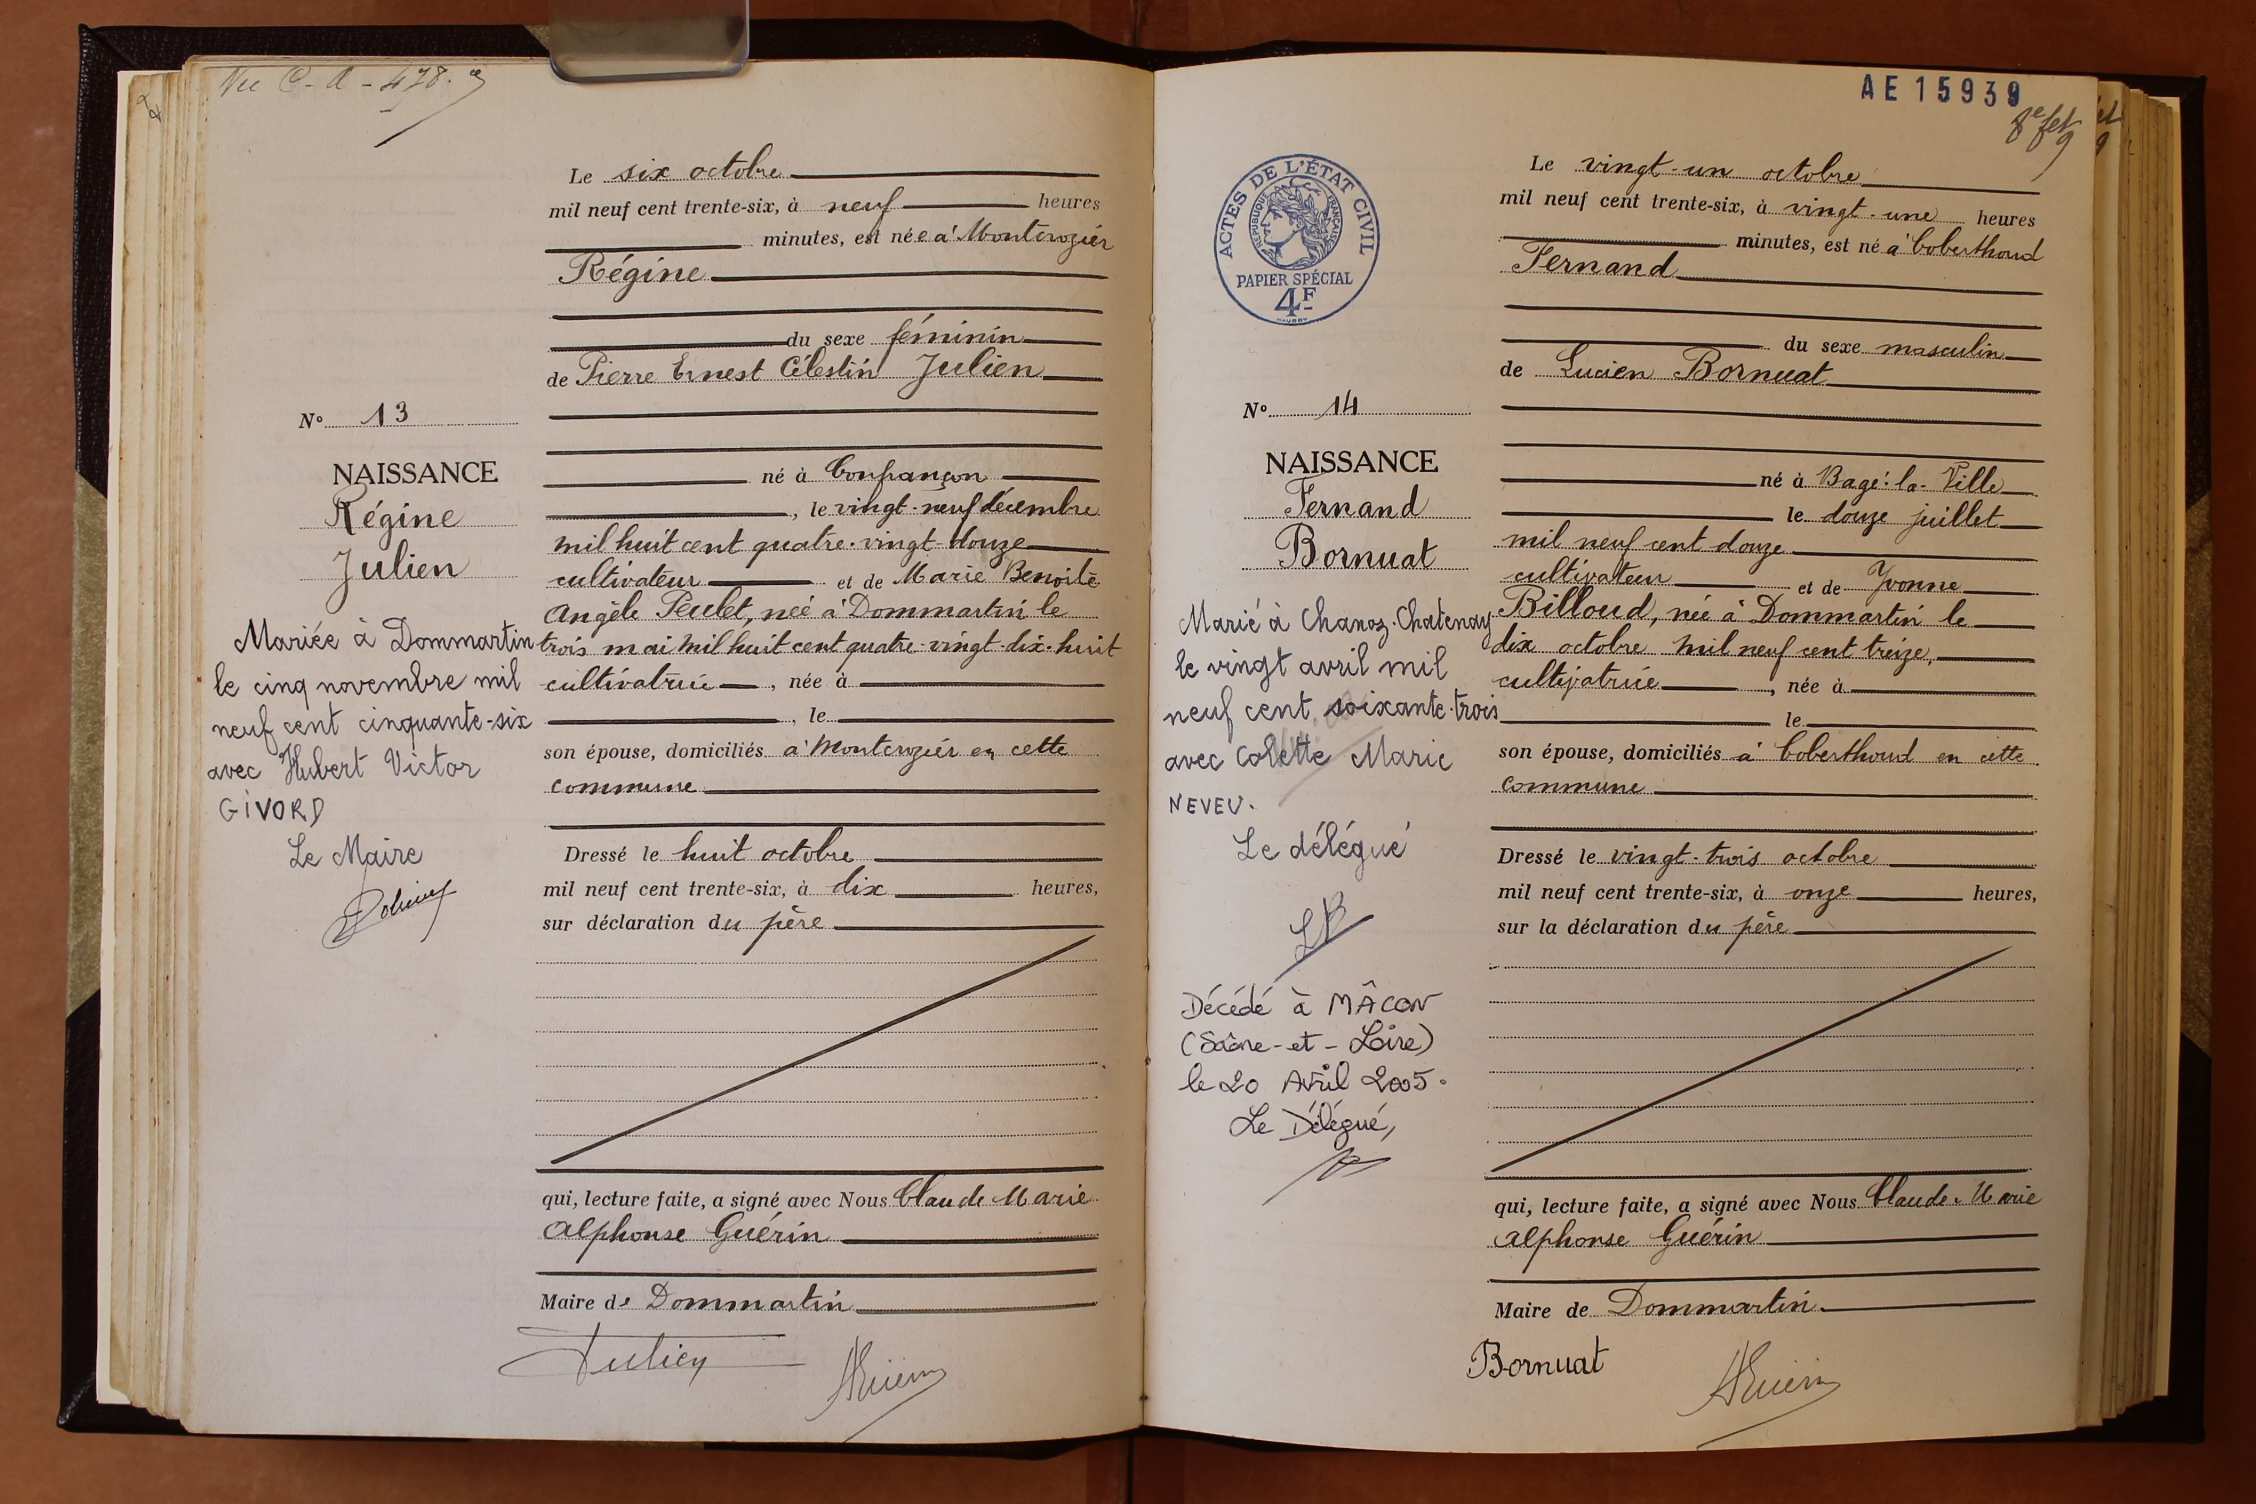 Vu C-A-478.
Le six octobre
mil neuf cent trente-six, à neuf heures
minutes, est née à Montcrozier
Régine
du sexe féminin
de Pierre Ernest Célestin Julien
N° 13
NAISSANCE
Régine
Julien
né à Confrançon
, le vingt-neuf décembre
mil huit cent quatre-vingt-douze
cultivateur et de Marie Benoite
Angèle Peulet, née à Dommartin le
trois mai mil huit cent quatre-vingt-dix-huit
cultivatrice , née à
, le
son épouse, domiciliés à Montcrozier en cette
commune
Mariée à Dommartin
le cinq novembre mil
neuf cent cinquante-six
avec Hubert Victor
GIVORD
Le Maire
Dressé le huit octobre
mil neuf cent trente-six, à dix heures,
sur déclaration du père
qui, lecture faite, a signé avec Nous Claude Marie
Alphonse Guérin
Maire de Dommartin
Julien
AGuérin
AE15939
8e fet
9
ACTES DE L'ÉTAT CIVIL
RÉPUBLIQUE FRANÇAISE
PAPIER SPÉCIAL
4F
Le vingt-un octobre
mil neuf cent trente-six, à vingt-une heures
minutes, est né à Coberthoud
Fernand
du sexe masculin
de Lucien Bornuat
N° 14
NAISSANCE
Fernand
Bornuat
né à Bagé-la-Ville
le douze juillet
mil neuf cent douze
cultivateur et de Yvonne
Billoud, née à Dommartin le
dix octobre mil neuf cent treize,
cultivatrice , née à
le
son épouse, domiciliés à Coberthoud en cette
commune
Marié à Chanoz-Chatenay
le vingt avril mil
neuf cent soixante-trois
avec Colette Marie
NEVEU.
Le délégué
LB
Décédé à MÂCON
(Saône-et-Loire)
le 20 Avril 2005.
Le Délégué,
Dressé le vingt-trois octobre
mil neuf cent trente-six, à onze heures,
sur la déclaration du père
qui, lecture faite, a signé avec Nous Claude-Marie
Alphonse Guérin
Maire de Dommartin
Bornuat
AGuérin